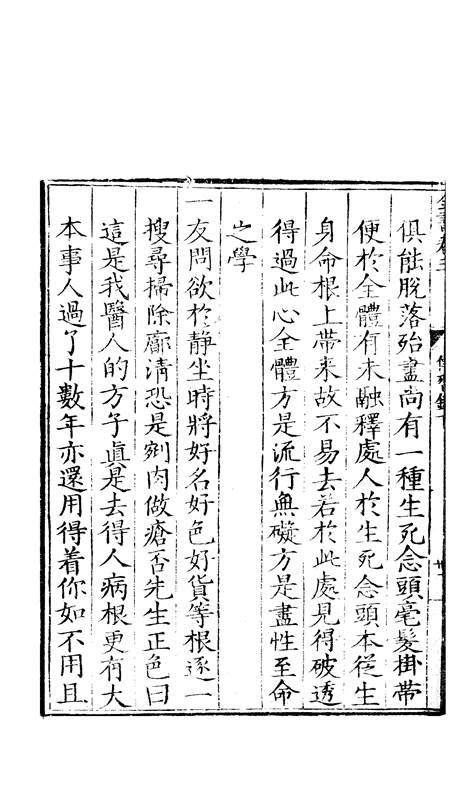 俱能脫落殆盡尚有一種生死念頭毫髮掛帶
便於全體有未融釋處人於生死念頭本從生
身命根上帶來故不易去若於此處見得破透
得過此心全體方是流行無礙方是盡性至命
之學
一友問欲於靜坐時將好名好色好貨等根逐一
搜尋掃除廓清恐是剜肉做瘡否先生正色曰
這是我醫人的方子眞是去得人病根更有大
本事人過了十數年亦還用得着你如不用且